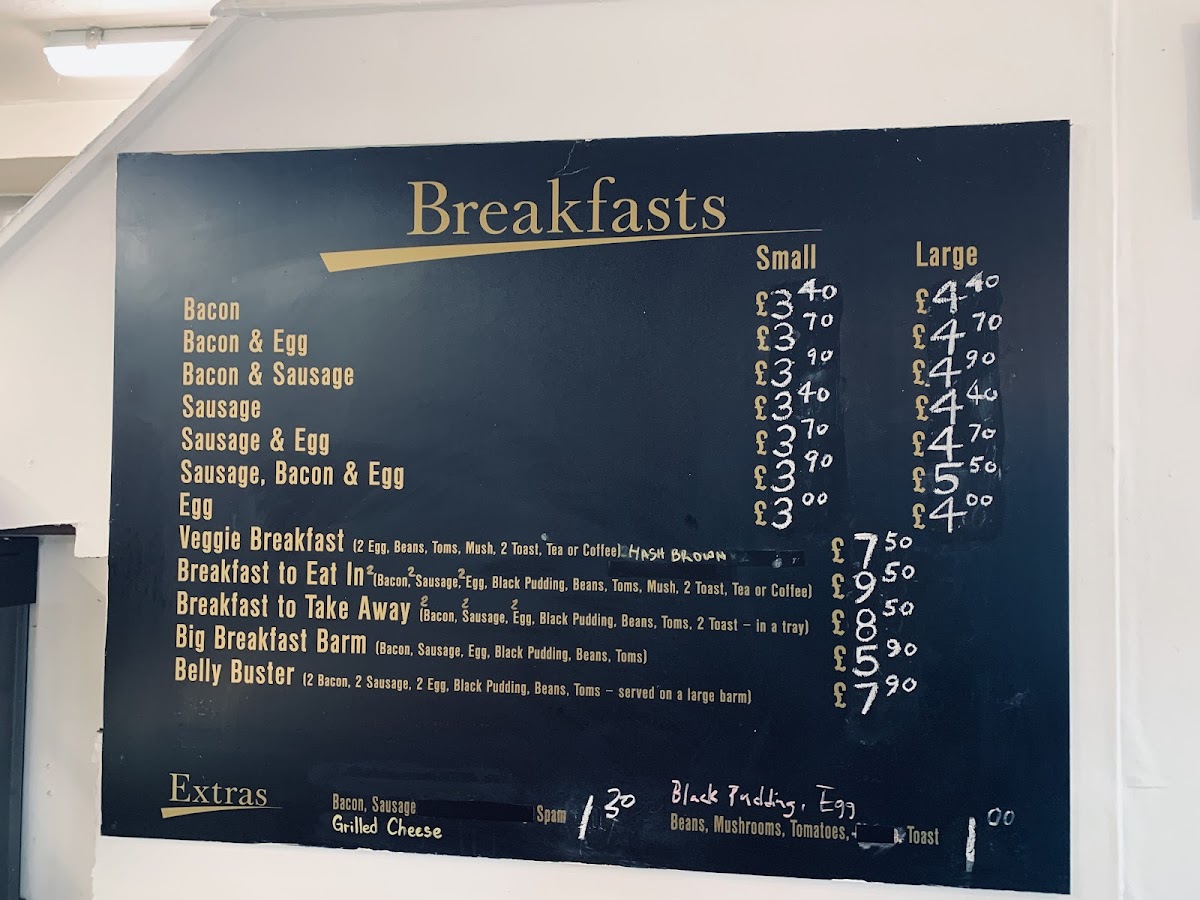 Breakfasts
Small Large
Bacon £3.40 £4.40
Bacon & Egg £3.70 £4.70
Bacon & Sausage £3.90 £4.90
Sausage £3.40 £4.40
Sausage & Egg £3.70 £4.70
Sausage, Bacon & Egg £3.90 £5.50
Egg £3.00 £4.00
Veggie Breakfast (2 Egg, Beans, Toms, Mush, 2 Toast, Tea or Coffee) HASH BROWN £7.50
Breakfast to Eat In (2 Bacon, 2 Sausage, 2 Egg, Black Pudding, Beans, Toms, Mush, 2 Toast, Tea or Coffee) £9.50
Breakfast to Take Away (2 Bacon, 2 Sausage, 2 Egg, Black Pudding, Beans, Toms, 2 Toast – in a tray) £8.50
Big Breakfast Barm (Bacon, Sausage, Egg, Black Pudding, Beans, Toms) £5.90
Belly Buster (2 Bacon, 2 Sausage, 2 Egg, Black Pudding, Beans, Toms – served on a large barm) £7.90
Extras
Bacon, Sausage Spam 1.30
Grilled Cheese
Black Pudding, Egg
Beans, Mushrooms, Tomatoes, Toast 1.00